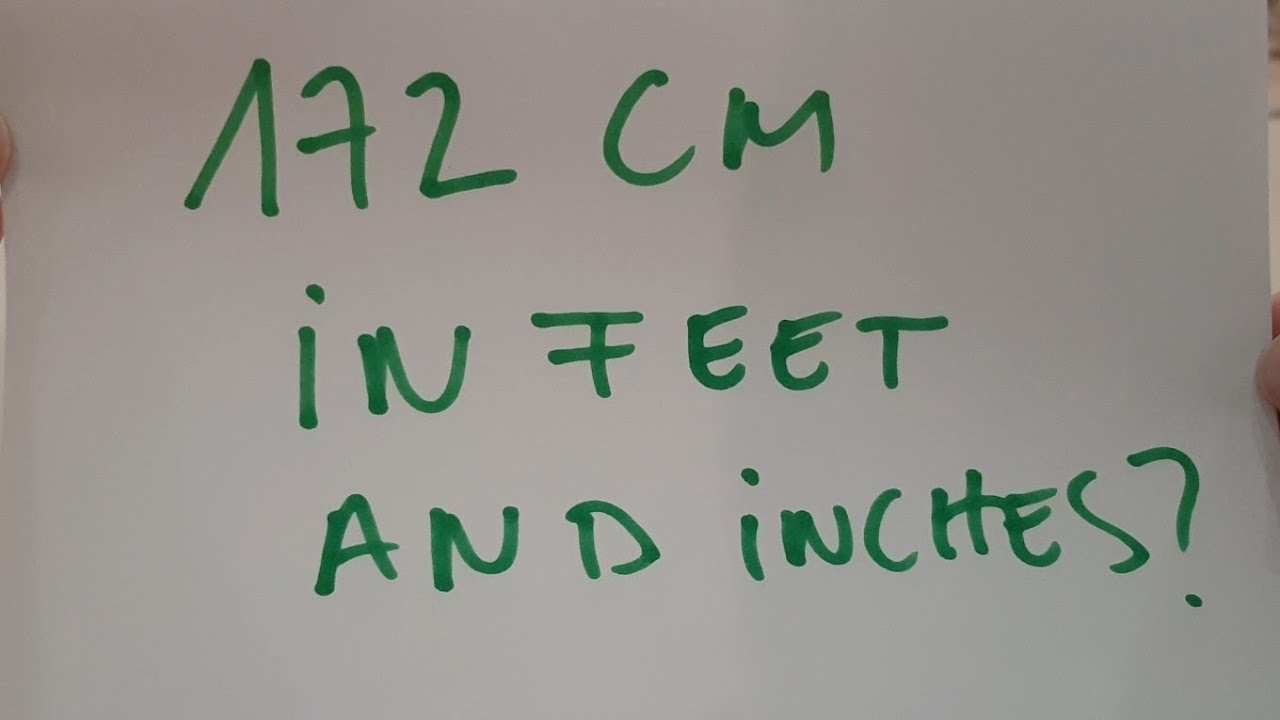 172 CM
iN FEET
AND iNCHES?